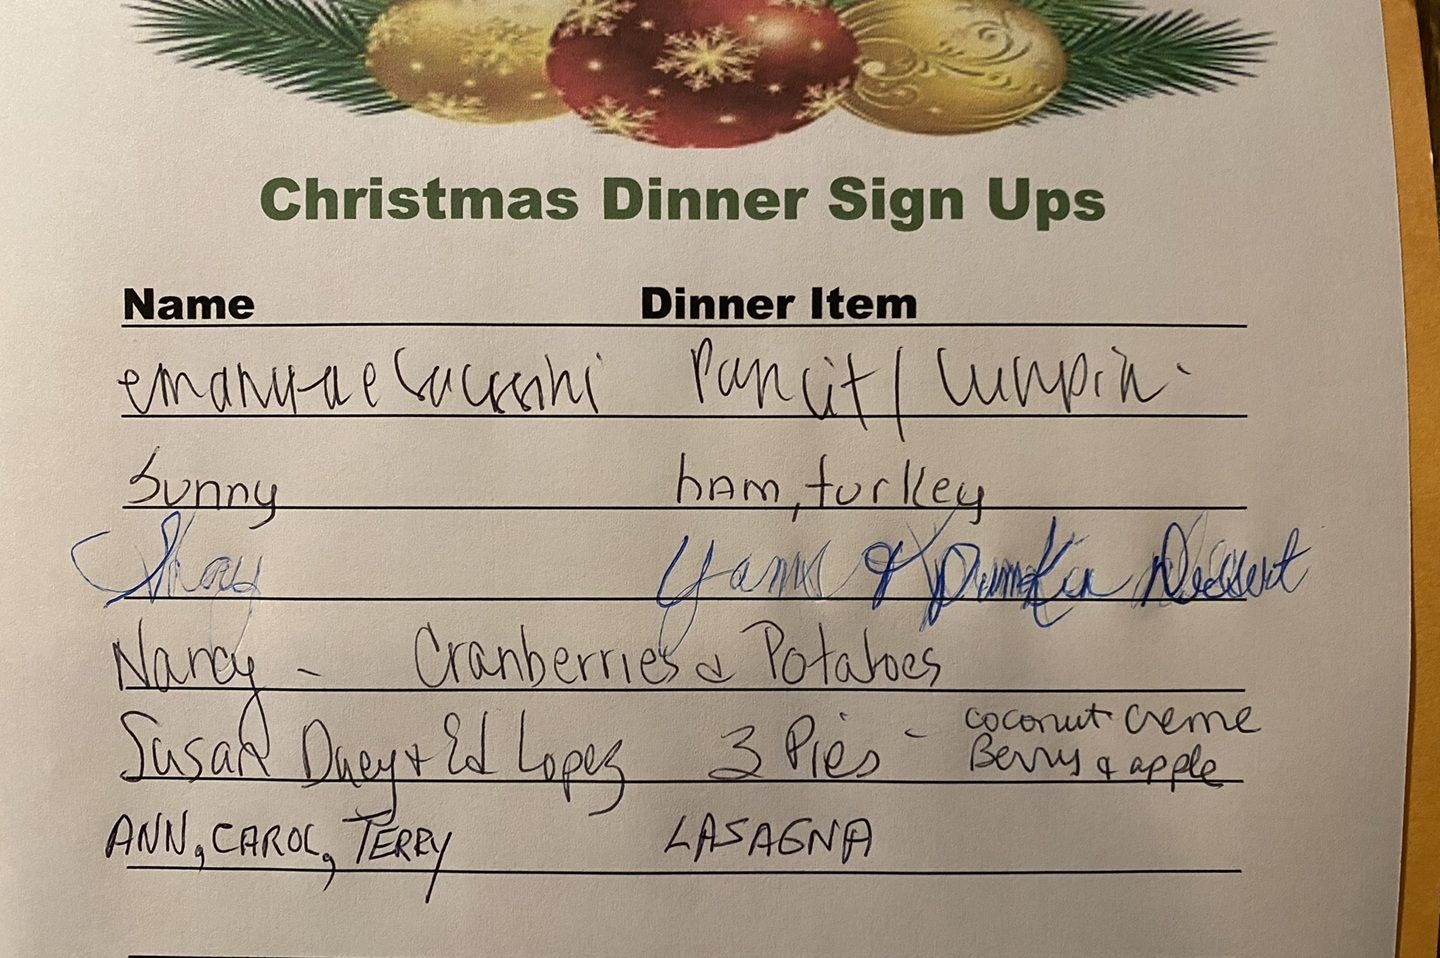 Christmas Dinner Sign Ups
Name Dinner Item
Pancit / Lumpia
Sunny ham, turkey
Shay Yams & Pumkin Dessert
Nancy - Cranberries & Potatoes
Susan Duey + Ed Lopez 3 Pies - coconut creme
Berry & apple
ANN, CAROL, TERRY LASAGNA